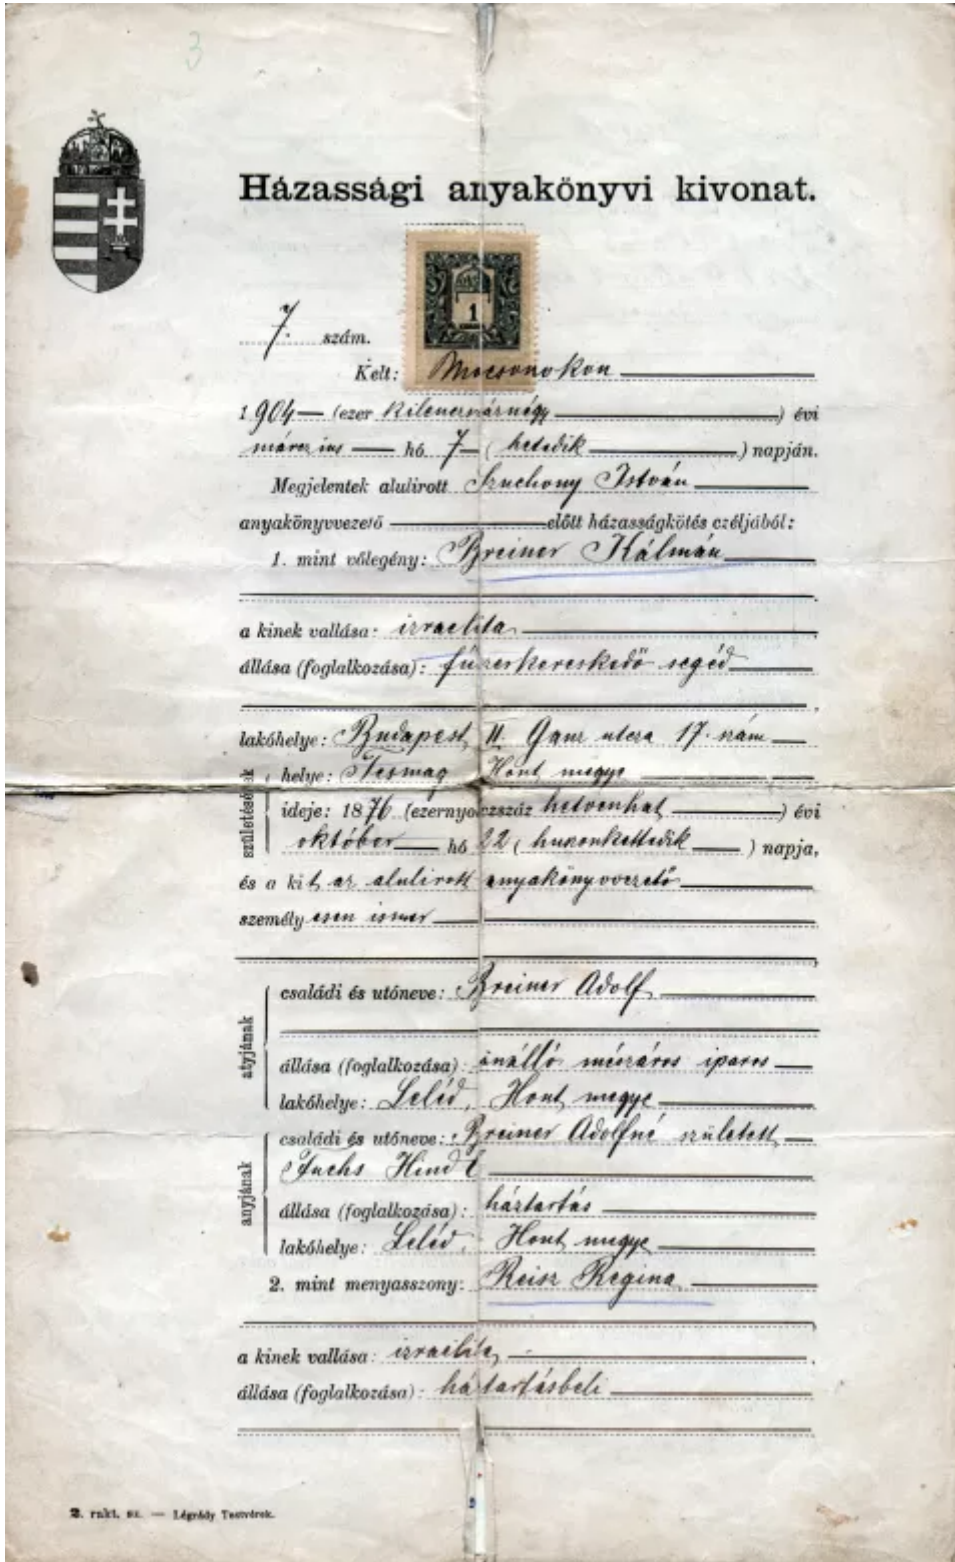 3
Házassági anyakönyvi kivonat.
1
7. szám.
Kelt: Mocsonokon
1904 (ezer kilenczszáznégy) évi
márczius hó 7 (hetedik) napján.
Megjelentek alulirott Szuchony István
anyakönyvvezető előtt házasságkötés czéljából:
1. mint vőlegény: Breiner Kálmán
a kinek vallása: izraelita
állása (foglalkozása): fűszerkereskedő segéd
lakóhelye: Budapest, II. Ganz utcza 17. szám
születésének
helye: Tesmag Hont megye
ideje: 1876 (ezernyolczszáz hetvenhat) évi
október hó 22 (huszonkettedik) napja,
és a kit az alulirott anyakönyvvezető
személyesen ismer
atyjának
családi és utóneve: Breiner Adolf
állása (foglalkozása): önálló mészáros iparos
lakóhelye: Leléd, Hont megye
anyjának
családi és utóneve: Breiner Adolfné született
Fuchs Hindl
állása (foglalkozása): háztartás
lakóhelye: Leléd, Hont megye
2. mint menyasszony: Reisz Regina
a kinek vallása: izraelita
állása (foglalkozása): háztartásbeli
2. rakt. sz. — Légrády Testvérek.